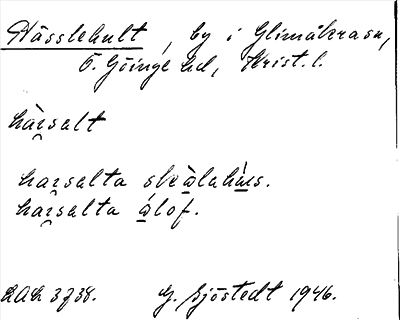 Hässlehult, by i Glimåkra sn,
Ö. Göinge hd, Krist. l.
hàrsalt
harsalta skòlahùs.
harsalta òlof.
LAL 3738. G. Sjöstedt 1946.